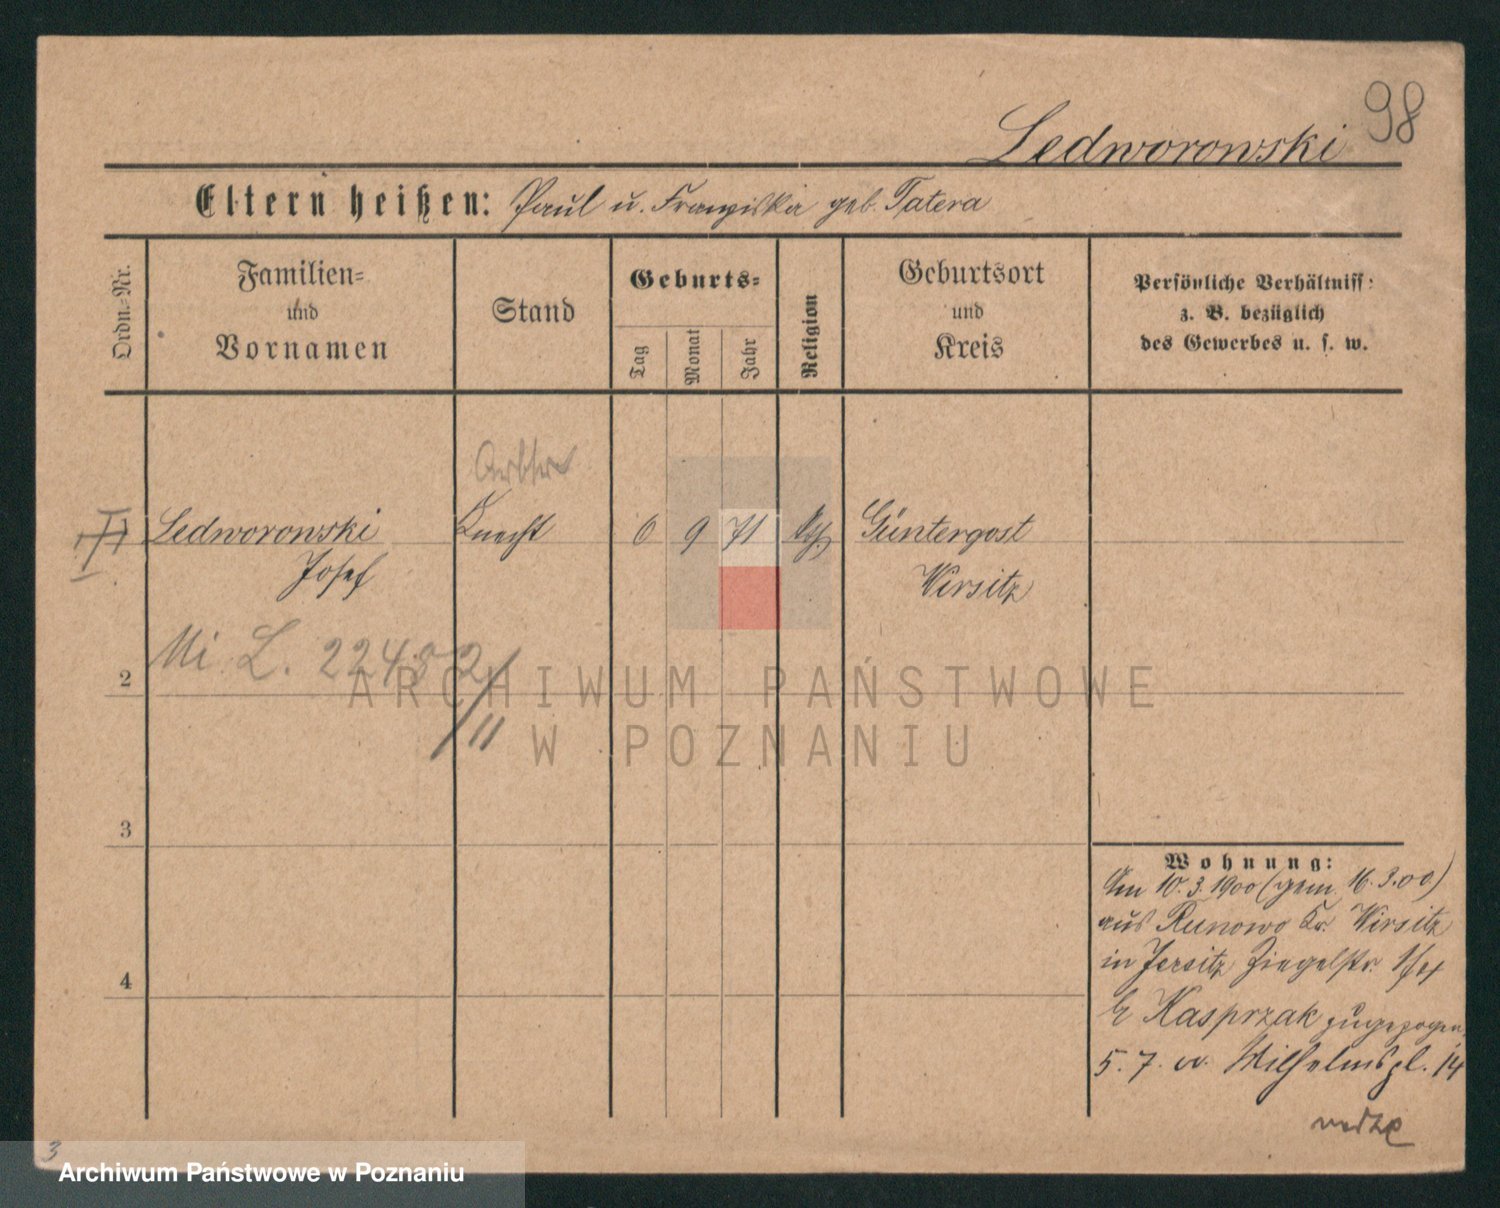 98
Ledworowski
Eltern heißen: Paul u. Franziska geb. Tatera
Ordn.-Nr.
Familien-
und
Vornamen
Stand
Geburts-
Tag
Monat
Jahr
Religion
Geburtsort
und
Kreis
Persönliche Verhältniss:
z. B. bezüglich
des Gewerbes u. s. w.
Ledworowski Knecht 6 9 71 Güntergost
Josef Wirsitz
Mi L.
2
/11
3
4
Wohnung:
Am 10.3.1900 (gem. 16.3.00)
aus Runowo Kr. Wirsitz
in Jersitz Ziegelstr.
Kasprzak zugezogen
5. 7. Wilhelmspl. 14
3
ARCHIWUM PAŃSTWOWE
W POZNANIU
Archiwum Państwowe w Poznaniu